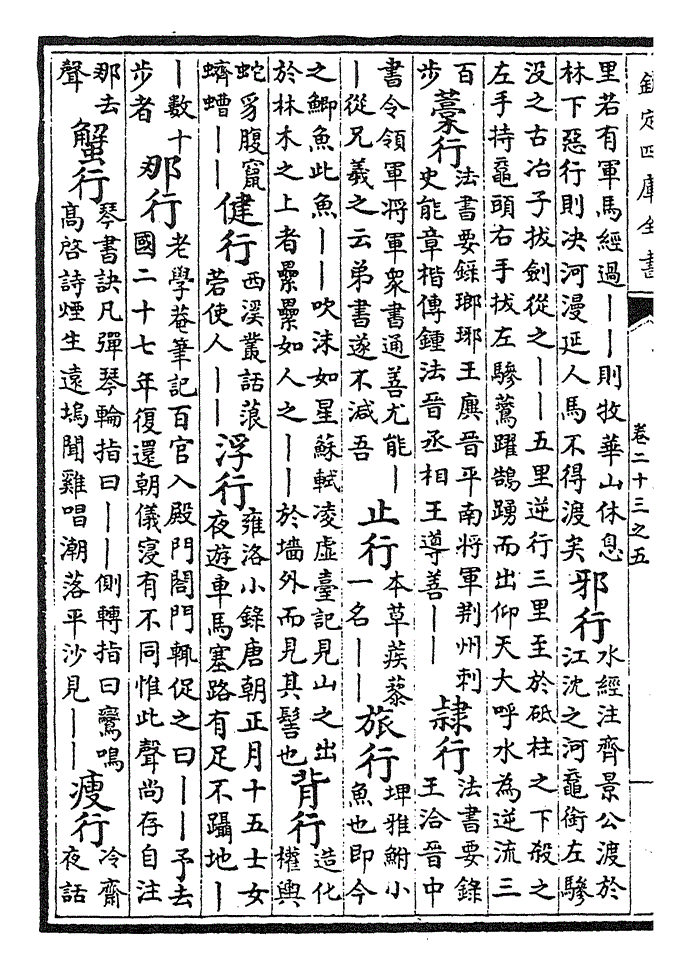 欽定四庫全書
卷二十三之五
里若有軍馬經過——則牧華山休息
林下惡行則决河漫延人馬不得渡矣
邪行
水經注齊景公渡於
江沈之河黿銜左驂
没之古冶子拔劍從之——五里逆行三里至於砥柱之下殺之
左手持黿頭右手拔左驂鷰躍鵠踴而出仰天大呼水為逆流三
百
步
藁行
法書要錄瑯琊王廙晉平南將軍荆州刺
史能章楷傳鍾法晉丞相王導善——
隸行
法書要錄
王洽晉中
書令領軍將軍衆書通善尤能—
—從兄羲之云弟書遂不減吾
止行
本草蒺藜
一名——
旅行
埤雅鮒小
魚也即今
之鯽魚此魚——吹沫如星蘇軾凌虛臺記見山之出
於林木之上者纍纍如人之——於墻外而見其髻也
背行
造化
權輿
蛇豸腹竄
蠐螬——
健行
西溪叢話蒗
若使人——
浮行
雍洛小錄唐朝正月十五士女
夜遊車馬塞路有足不躡地—
—數十
步者
那行
老學菴筆記百官入殿門閤門輒促之曰——予去
國二十七年復還朝儀寖有不同惟此聲尚存自注
那去
聲
蟹行
琴書訣凡彈琴輪指曰——側轉指曰鸞鳴
高啓詩煙生遠塢聞雞唱潮落平沙見——
瘦行
冷齋
夜話